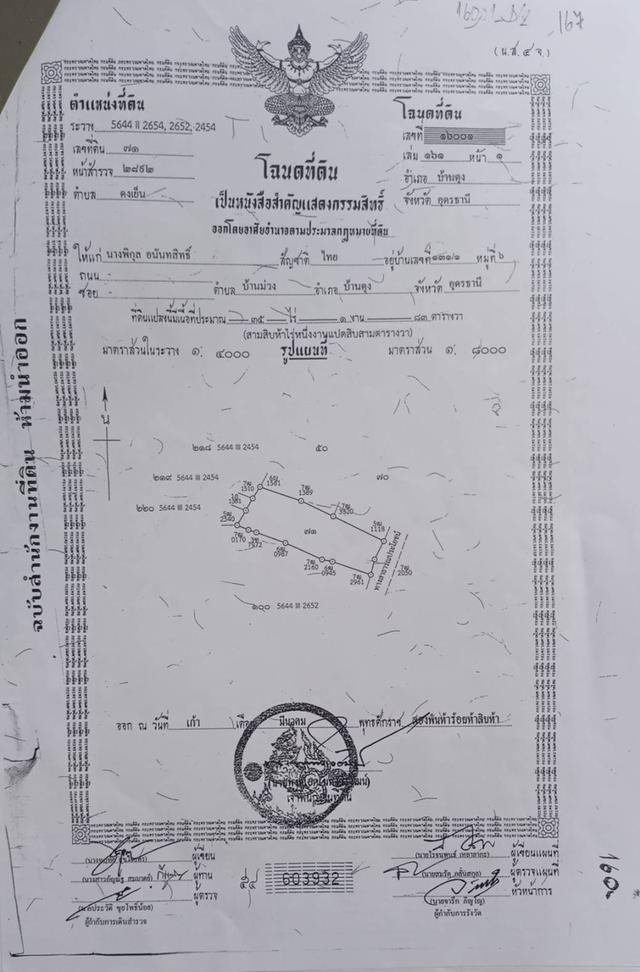 ๑๖๗
(น.ส.๔ จ.)
ตำแหน่งที่ดิน
ระวาง 5644 II 2654, 2652, 2454
เลขที่ดิน ๗๑
หน้าสำรวจ ๒๘๙๒
ตำบล ดงเย็น
โฉนดที่ดิน
เลขที่ ๑๖๐๐๑
เล่ม ๑๖๑ หน้า ๑
อำเภอ บ้านดุง
จังหวัด อุดรธานี
โฉนดที่ดิน
เป็นหนังสือสำคัญแสดงกรรมสิทธิ์
ออกโดยอาศัยอำนาจตามประมวลกฎหมายที่ดิน
ให้แก่ นางพิกุล อนันทสิทธิ์ สัญชาติ ไทย อยู่บ้านเลขที่ ๑๓๑/๑ หมู่ที่ ๖
ถนน -
ซอย - ตำบล บ้านม่วง อำเภอ บ้านดุง จังหวัด อุดรธานี
ที่ดินแปลงนี้มีเนื้อที่ประมาณ ๓๕ ไร่ ๑ งาน ๘๓ ตารางวา
(สามสิบห้าไร่หนึ่งงานแปดสิบสามตารางวา)
มาตราส่วนในระวาง ๑: ๔๐๐๐ รูปแผนที่ มาตราส่วน ๑: ๘๐๐๐
น
๒๑๘ 5644 III 2454 ๕๐
๒๑๙ 5644 III 2454 ๗๐
๒๒๐ 5644 III 2454
1581
1310
1389
1381
3320
2540
1118
0170
๗๑
0987
2160
0945
2961
2050
ทางสาธารณประโยชน์
๑๐๐ 5644 III 2652
ออก ณ วันที่ เก้า เดือน มีนาคม พุทธศักราช สองพันห้าร้อยห้าสิบห้า
เจ้าพนักงานที่ดิน
ผู้เขียน
ผู้ทาน
ผู้ตรวจ
(นายประวัติ ชุยโพธิ์น้อย)
ผู้กำกับการเดินสำรวจ
603932
ผู้เขียนแผนที่
ผู้ตรวจแผนที่
หัวหน้าการ
(นายจารึก ภิญโญ)
ผู้กำกับการรังวัด
ฉบับสำนักงานที่ดิน ห้ามนำออก